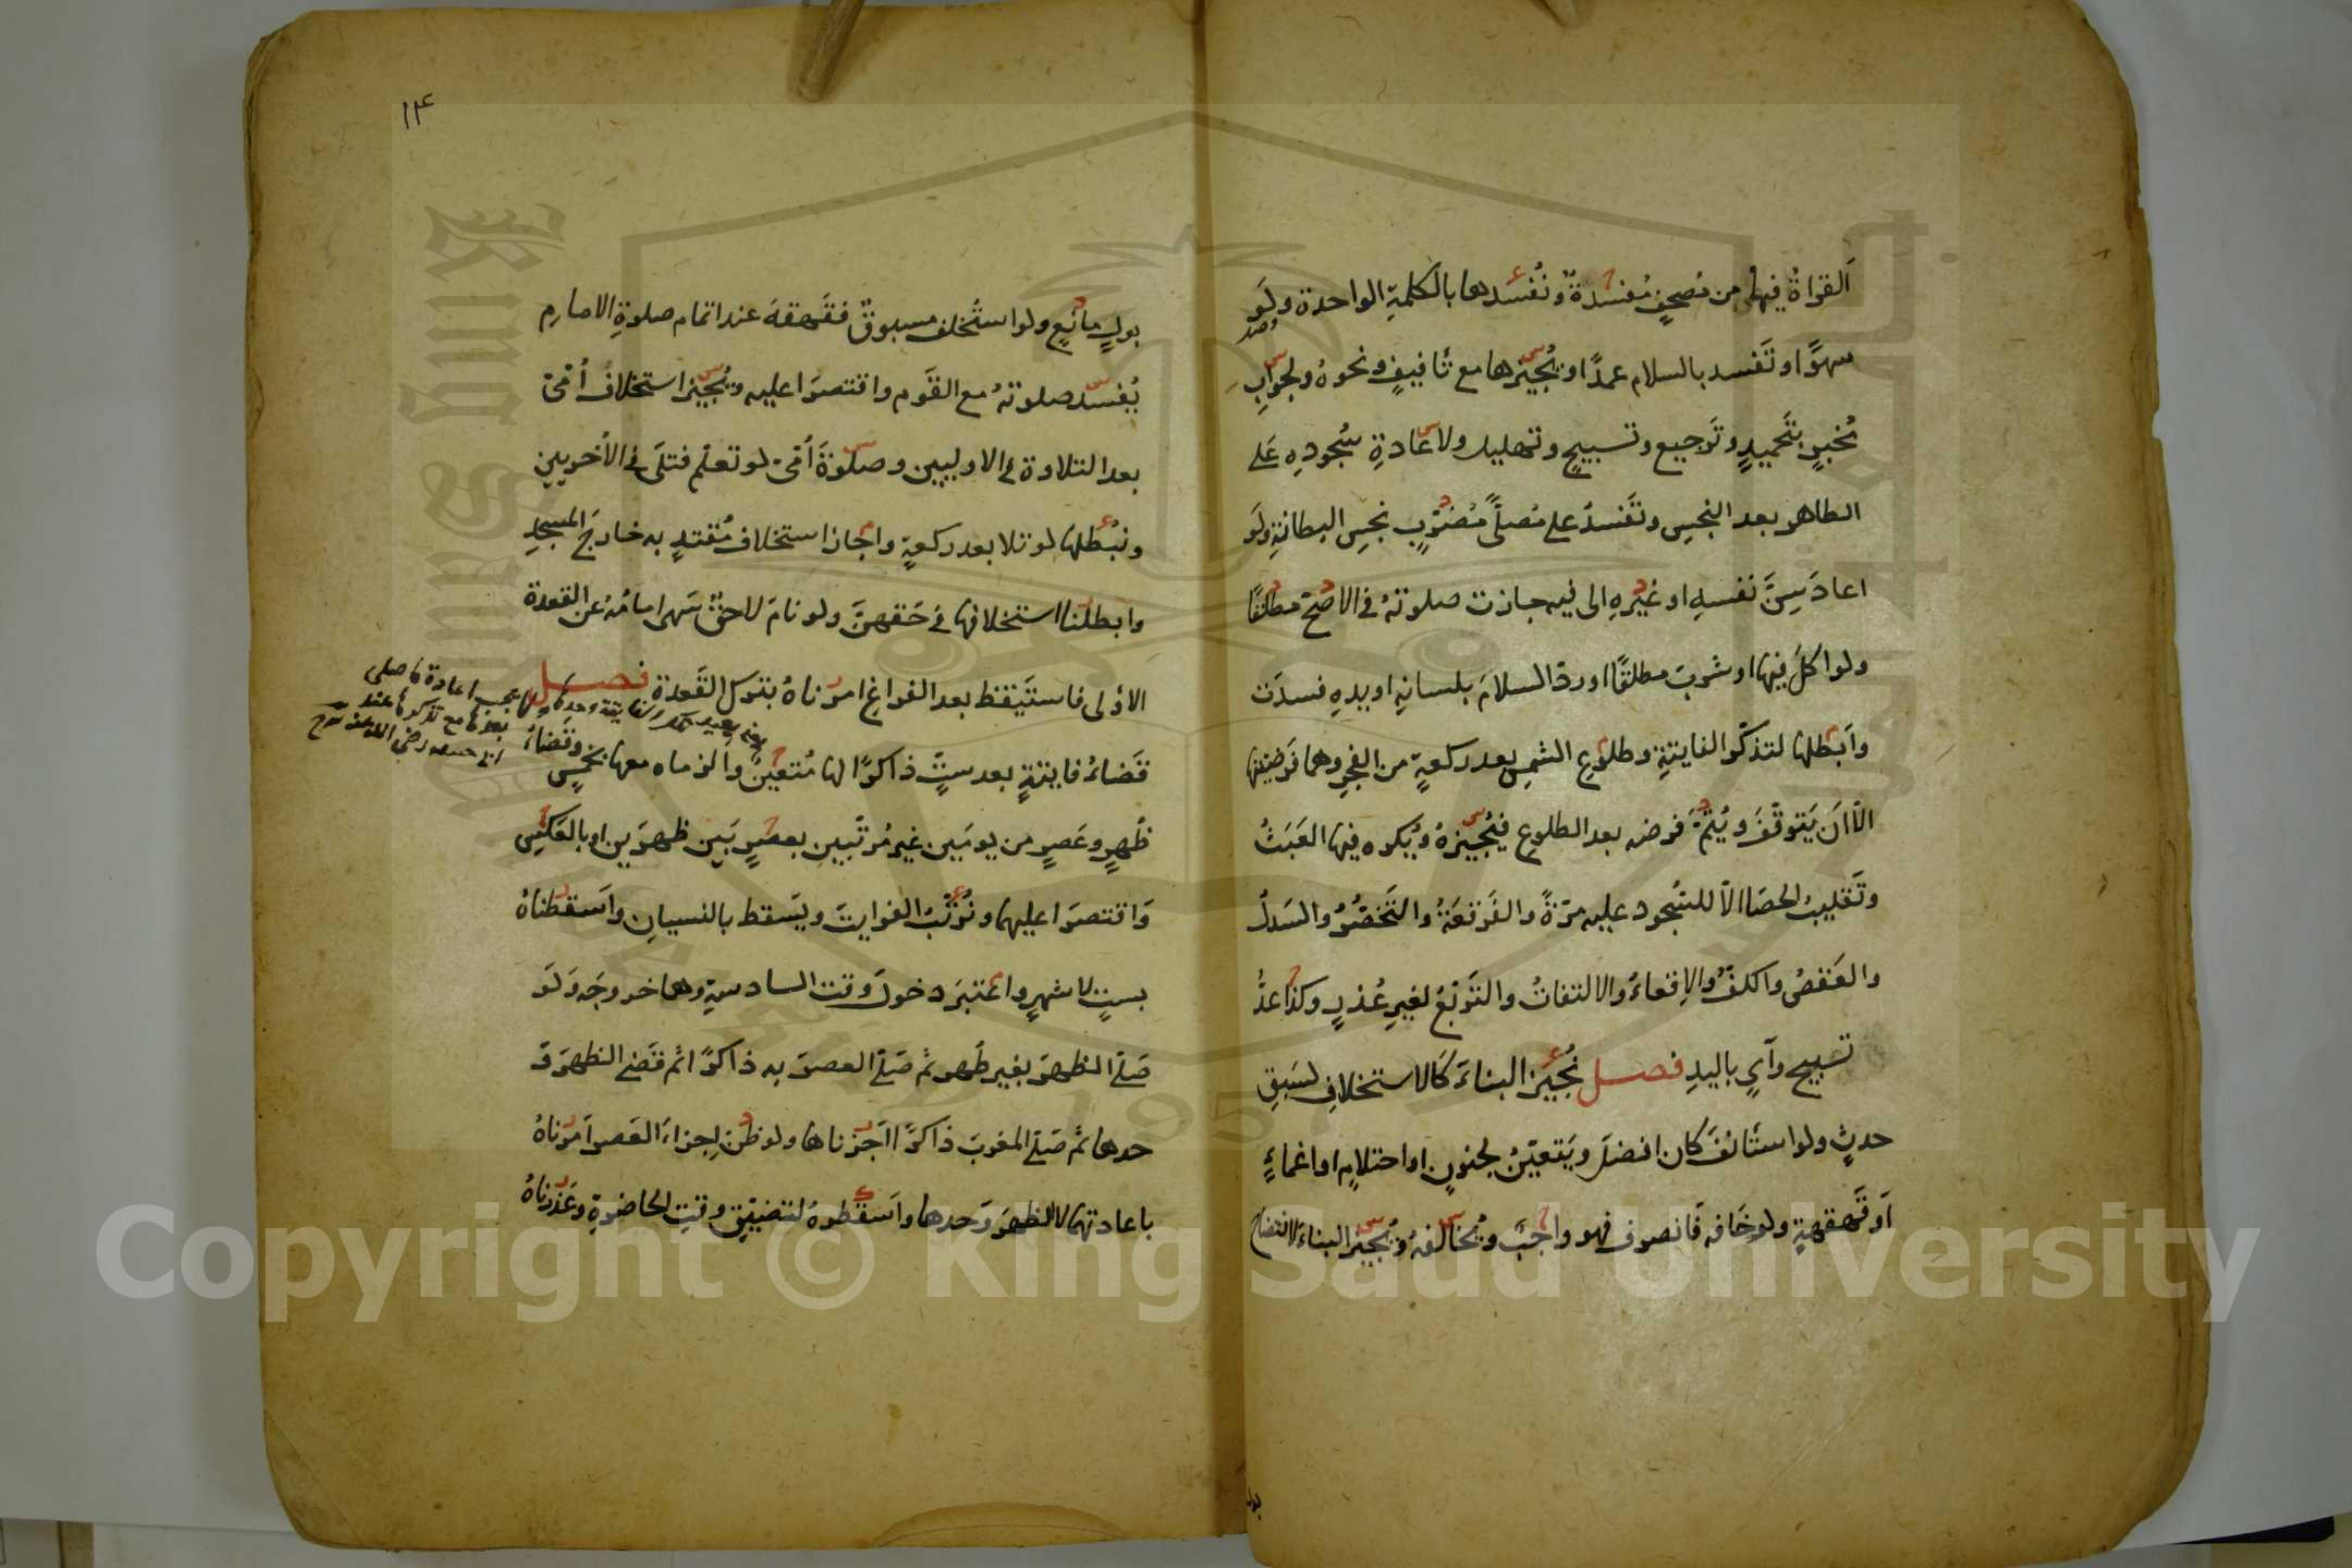 القراةُ فيها من مُصحفٍ مُفسدةٌ ونُفسدها بالكلمةِ الواحدة ولَو
سهوًا او تَفسد بالسلام عمدًا او يُجيزها مع تَافيفٍ ونحوهُ ولجوابِ
مُخبرٍ بتَحميدٍ وتَرجيع وتسبيحٍ وتهليلٍ ولاعادةِ سُجودِه عَلى
الطاهر بعد النجسِ وتَفسدُ على مُصلًّى مُضرّبٍ نجسِ البطانةِ ولَو
اعادَ سِنَّ نفسهِ او غيرِهِ الى فيه جازت صلوتهُ فى الاصحِّ مطلقًا
ولو اكلَ فيها او شربَ مطلقًا او ردّ السلامَ بلسانِه او يدِه فسدَت
وأبطلها لتذكّر الفايتةِ وطلوعِ الشمس بعد ركعةٍ من الفجرِ وهما فَرضيتها
الّا ان يَتوقّفَ ويُتمَّ فرضه بعد الطلوع فيُجيزهُ ويُكره فيها العَبَثُ
وتَقليبُ الحصَا الّا للسُّجود عليه مرّةً والفَرقَعَةُ والتَخَصُّرُ والسَدلُ
والعَقصُ والكفُّ والاِقعاءُ والالتفاتُ والتَرَبّعُ لغيرِ عُذرٍ وكذا عدُّ
تسبيحٍ وآىٍ باليدِ فصل نُجيز البناءَ كَالاستخلافِ لسَبقِ
حدثٍ ولو استَأنفَ كان افضلَ ويَتعيّنُ لجنونٍ او احتلامٍ او اغماءٍ
اَو قَهقهةٍ ولو خَافه فَانصرف فهو واجبٌ ويُخالفهُ ويُجيزُ البناءَ لانتضاحِ
بول
١٤
بولٍ مانعٍ ولو استَخلف مسبوقٌ فقَهقهَ عند اتمام صلوةِ الامام
يُفسد صلوتهُ مع القَوم واقتصرَا عليه ويُجيز استخلافُ أُمّىّ
بعد التلاوة فى الاوليين وصلوةَ أُمّىّ لو تعلّم فتلَى فى الأخريين
ونُبطلها لو تلا بعد ركعةٍ واجاز استخلاف مُقتدٍ به خارجَ المسجدِ
وابطلنا استخلافها فى حَقهنَّ ولو نامَ لاحقٌ سَهى امامُهُ عن القعدة
الاولى فاستَيقظ بعد الفراغِ امرناهُ بتركِ القَعدة فصل
قَضاءُ فايتةٍ بعد ستٍّ ذاكرًا لها مُتعيّنٌ والزماه معها بخمسٍ وقضاءُ
ظُهرٍ وعَصرٍ من يومَين غير مُرتّبين بعصرٍ بَين ظهرَين او بالعَكسِ
وَاقتصرَا عليهما ونُرَتّبُ الفوايتَ ويَسقط بالنسيانِ وأسقطناهُ
بستٍ لا شهرٍ واعتبَر دخولَ وقت السادسةِ وهما خروجَه وَلَو
صَلّى الظهرَ بغير طُهر ثم صَلّى العصرَ به ذاكرًا ثم قَضى الظهرَ وَ
حدها ثم صَلّى المغربَ ذاكرًا اَجَزناها ولو ظنّ اِجزاءَ العَصر اَمرناهُ
باعادتهما لا الظهرَ وَحدها واَسقَطوهُ لتضيّقِ وقتِ الحاضرةِ وعَذرناهُ
Copyright © King Saud University